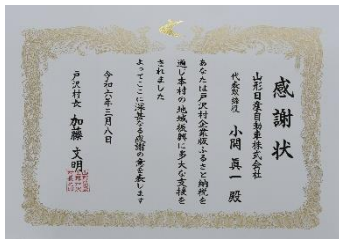 感謝状
山形日産自動車株式会社
代表取締役 小関 眞一 殿
あなたは戸沢村企業版ふるさと納税を
通じ本村の地域振興に多大な支援を
されました
よってここに深甚なる感謝の意を表します
令和六年三月八日
戸沢村長 加藤 文明